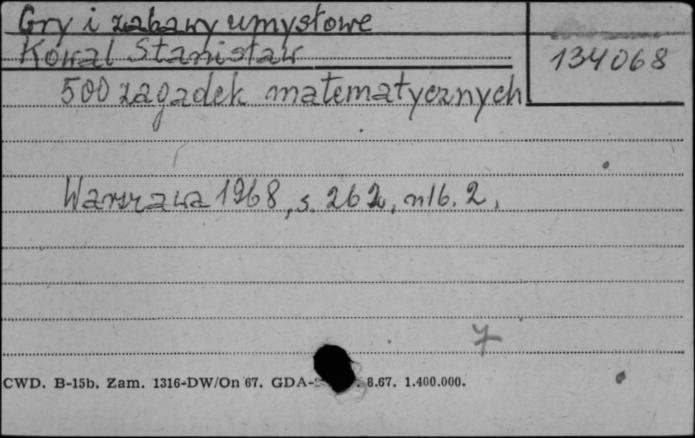 Gry i zabawy umysłowe
Kowal Stanisław
134068
500 zagadek matematycznych
Warszawa 1968, s. 262, nlb. 2,
7
CWD. B-15b. Zam. 1316-DW/On 67. GDA- 8.67. 1.400.000.